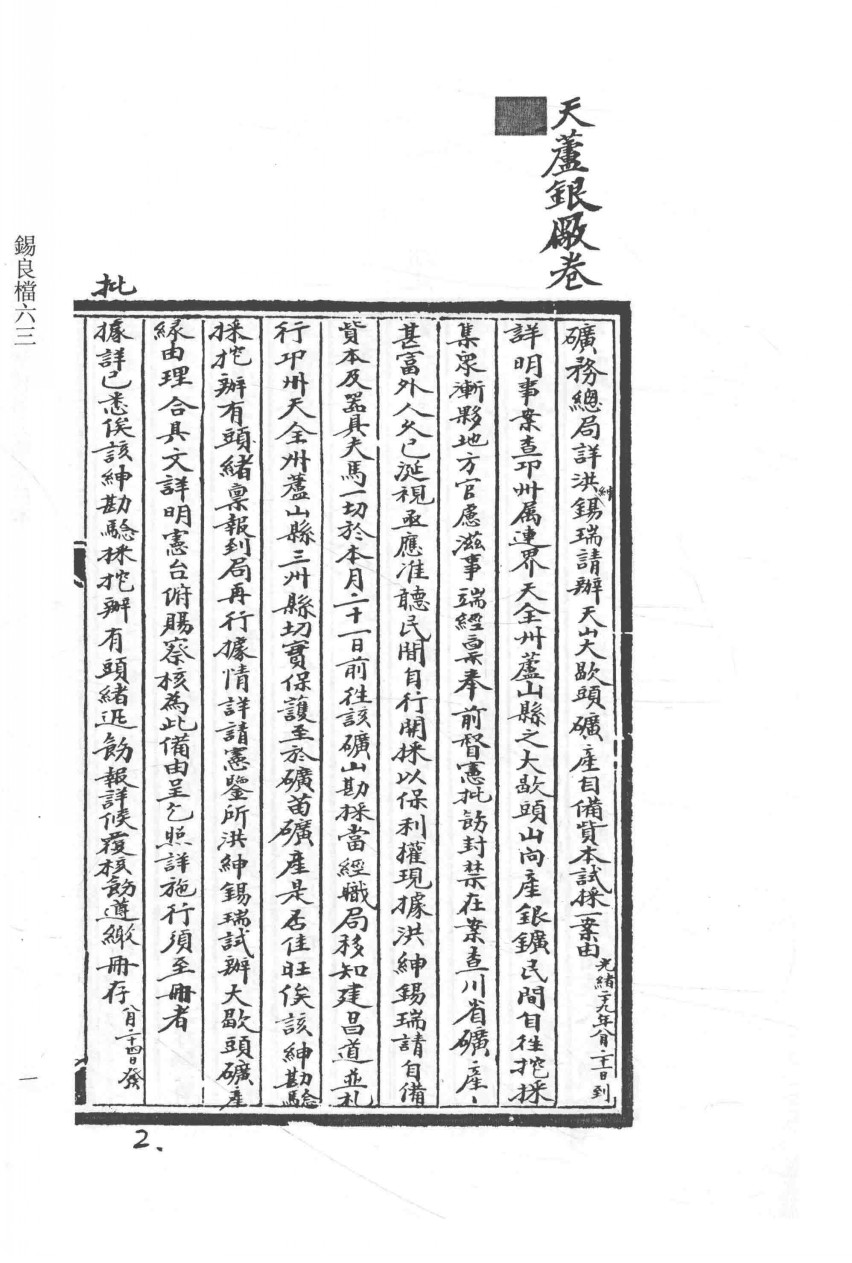 天蘆銀廠卷
礦務總局詳洪紳錫瑞請辦天山大歇頭礦產自備貲本試採一案由 光緒二十九年八月二十一日到
詳明事案查邛州属連界天全州蘆山縣之大歇頭山向產銀鑛民間自往挖採
集衆漸夥地方官慮滋事端經稟奉前督憲批飭封禁在案查川省礦產、
甚富外人久已涎視亟應准聽民間自行開採以保利權現據洪紳錫瑞請自備
貲本及器具夫馬一切於本月二十一日前往該礦山勘採當經職局移知建昌道並札
行邛州天全州蘆山縣三州縣切實保護至於礦苗礦產是否佳旺俟該紳勘驗
採挖辦有頭緒稟報到局再行據情詳請憲鑒所洪紳錫瑞試辦大歇頭礦產
緣由理合具文詳明憲台俯賜察核為此備由呈乞照詳施行須至冊者
批
據詳已悉俟該紳勘驗採挖辦有頭緒迅飭報詳候覆核飭遵繳冊存 八月二十四日發
錫良檔六三
一
2.